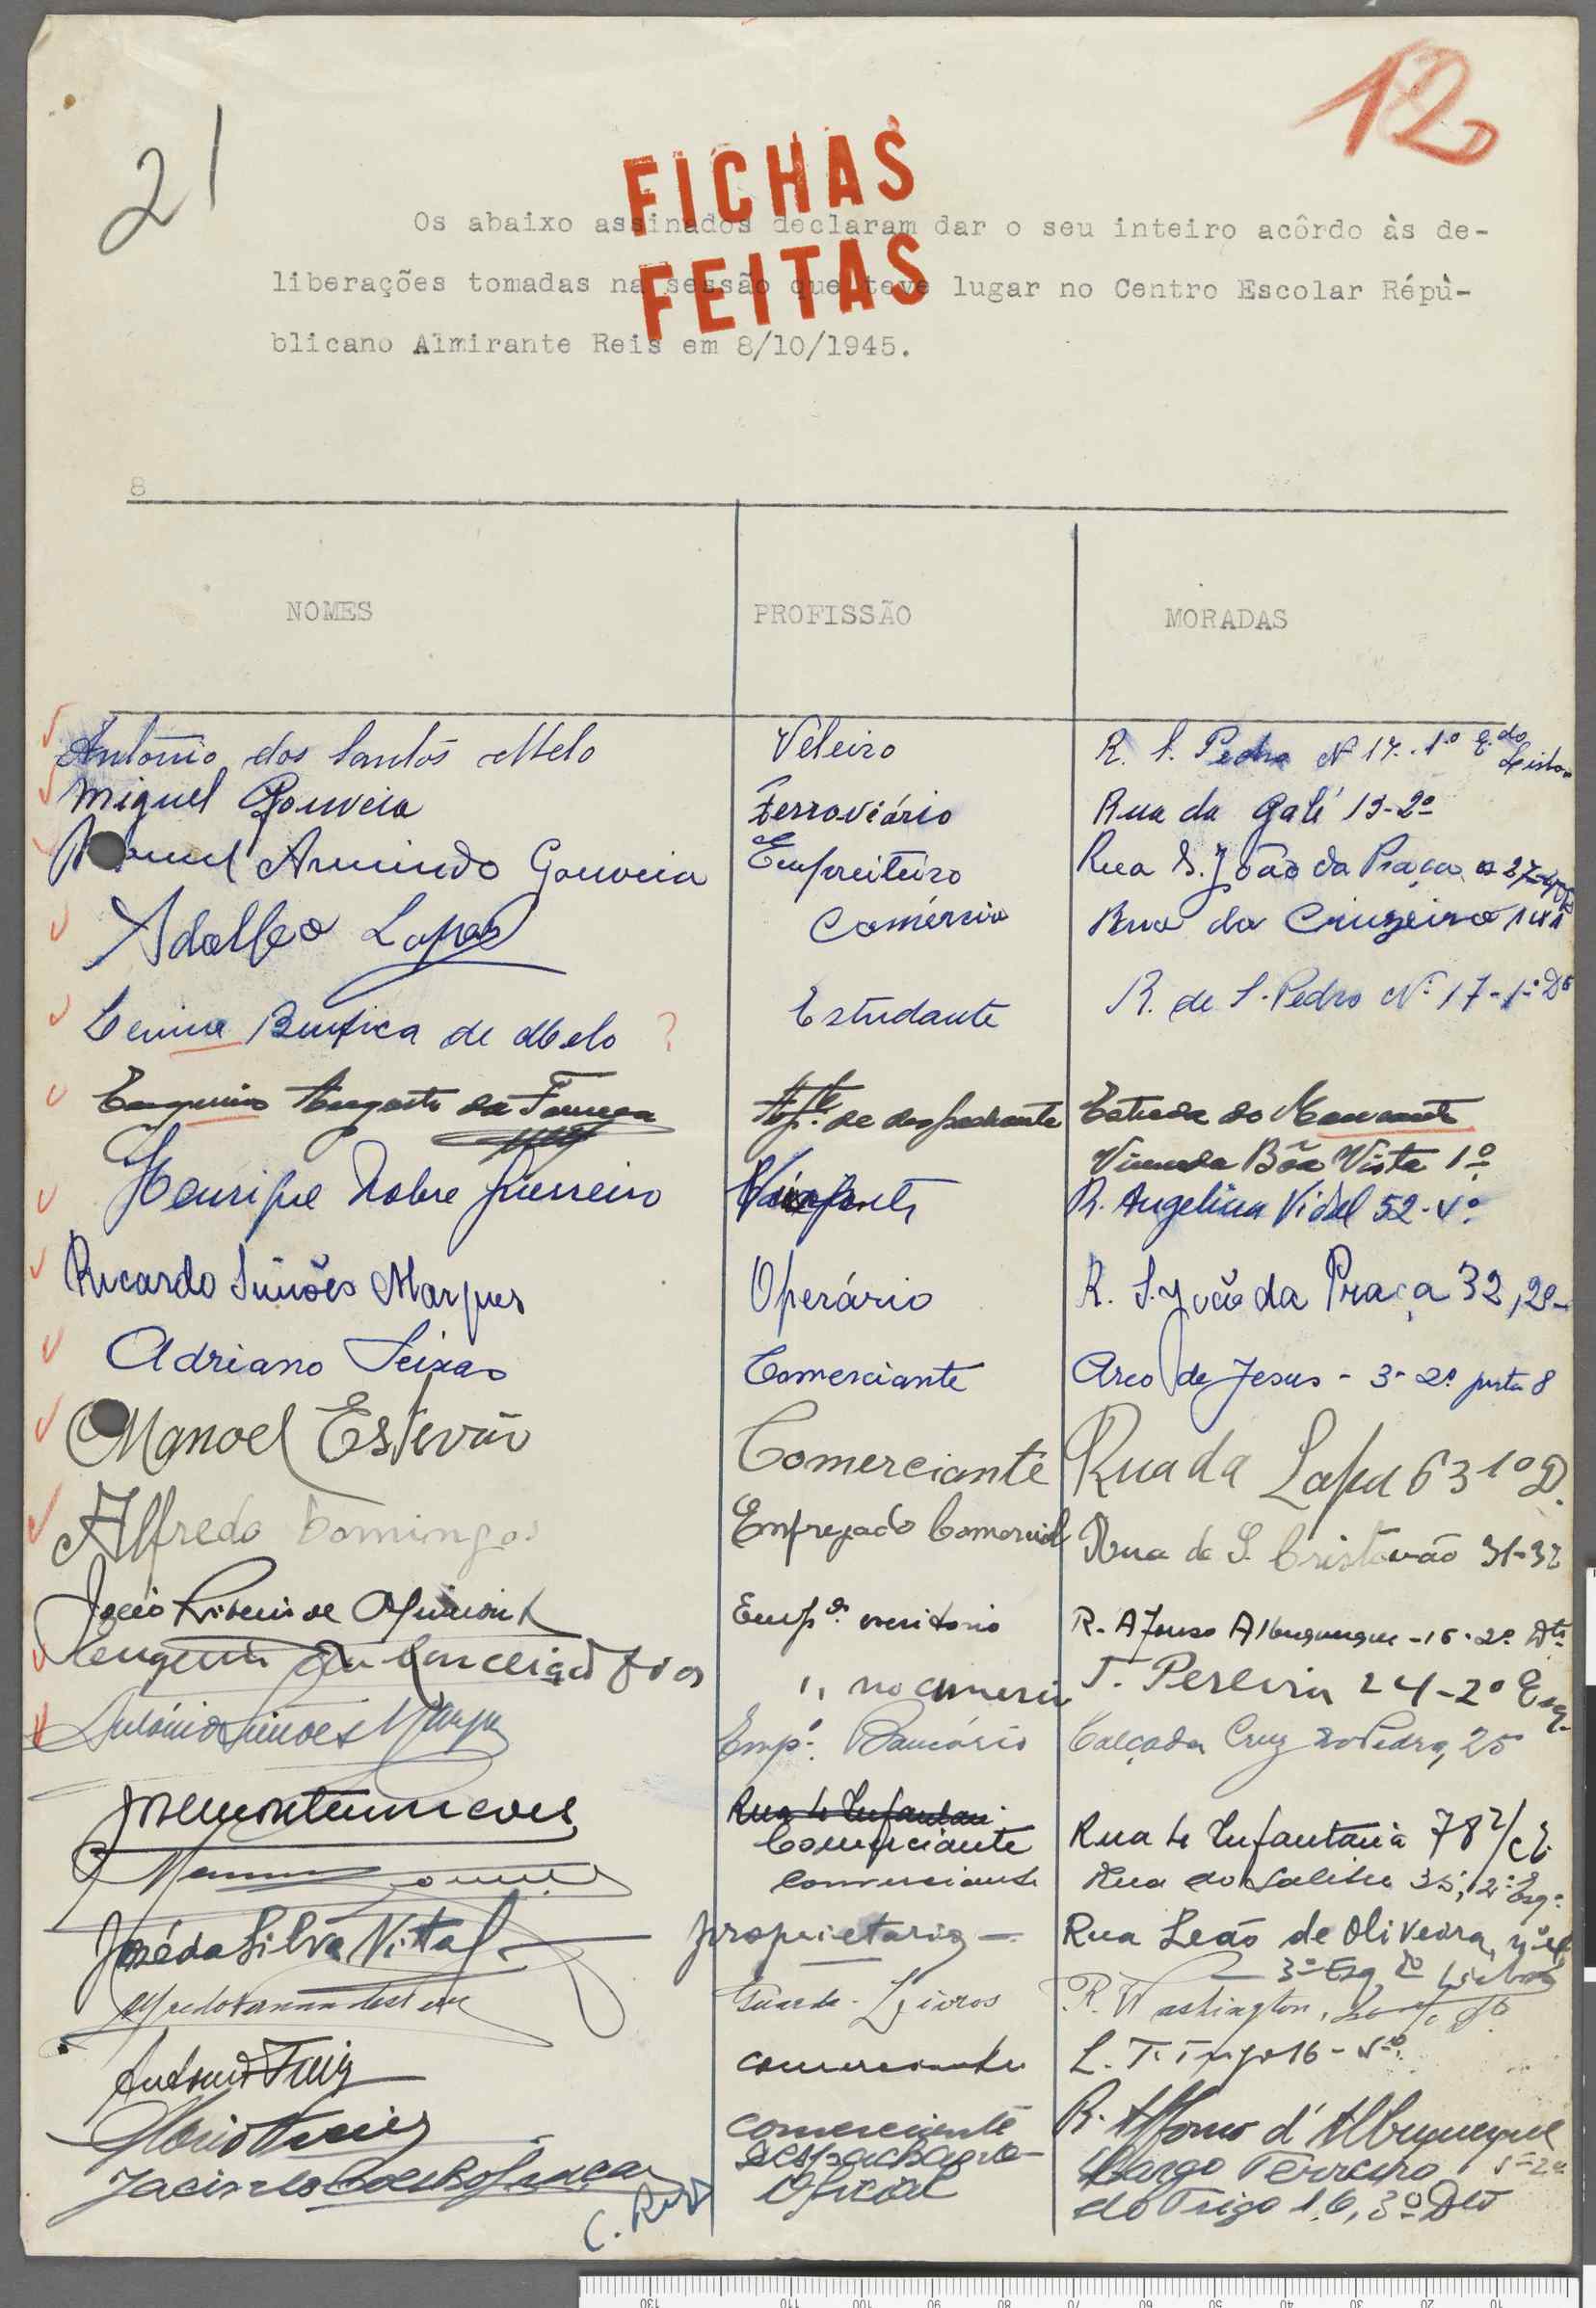 12
21
FICHAS
FEITAS
Os abaixo assinados declaram dar o seu inteiro acôrdo às de-
liberações tomadas na sessão que teve lugar no Centro Escolar Répù-
blicano Almirante Reis em 8/10/1945.
8
NOMES PROFISSÃO MORADAS
António dos Santos Melo Veleiro R. S. Pedro Nº 17-1º E.do Lisboa
Miguel Gouveia Ferroviário Rua da Galé 13-2º
Manuel Armindo Gouveia Empreiteiro Rua S. João da Praça
Adolfo Lopes Comércio Rua do Cruzeiro
Lenine Benfica de Melo ? Estudante R. de S. Pedro Nº 17-1º Dº
Eugenio Augusto da Fonseca de despachante Estrada do
Vivenda Bôa Vista 1º
Henrique Nobre Guerreiro R. Angelina Vidal 52-4º
Ricardo Simões Marques Operário R. S. João da Praça 32, 2º
Adriano Seixas Comerciante Arco de Jesus - 3-2º porta 8
Manoel Estevão Comerciante Rua da Lapa 63 1º D.
Alfredo Domingos Empregado Comercial Rua de S. Cristóvão 31-32
João Ribeiro de Empº escritorio R. Afonso Albuquerque-16-2º Dtº
da Conceição " no comercio T. Pereira 24-2º Esq.
António Simões Marques Empº Bancário Calçada Cruz da Pedra, 25
Comerciante Rua de Infantaria
comerciante Rua do Salitre 35, 2º Esq.
José da Silva Vital proprietario Rua Leão de Oliveira,
3º Esq Lisboa
Alfredo Guarda-Livros R. Washington,
António comerciante L. T. Trigo 16
Mario comerciante R. Affonso d'Albuquerque
Jacinto despachante Largo Terreiro
Oficial do Trigo 16, 3º Dto